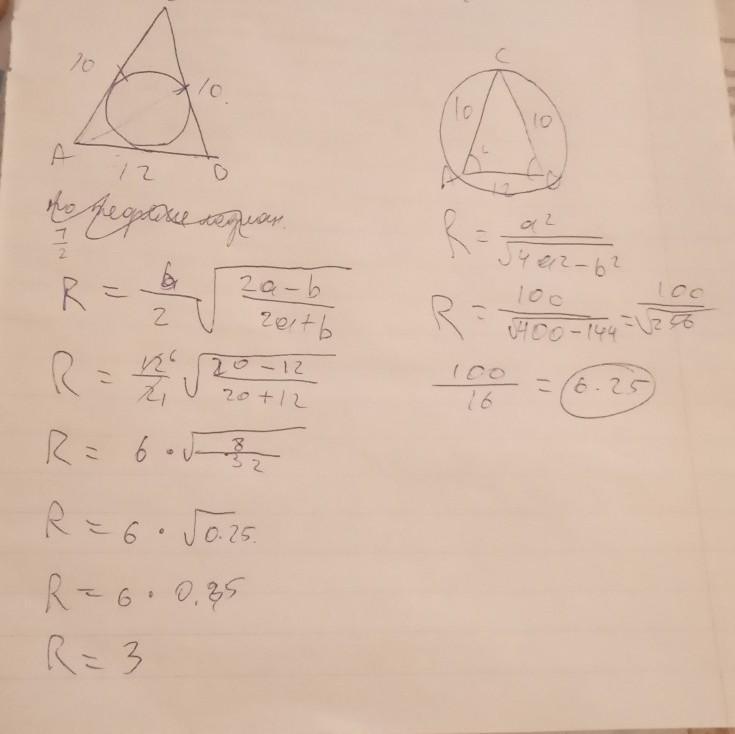 10
10.
A
12
7/2
R = b/2 √(2a-b)/(2a+b)
R = 12 6/2 1 √(20-12)/(20+12)
R = 6 · √8/32
R = 6 · √0.25.
R = 6 · 0.5
R = 3
C
10 10
A
12
R = a²/√4a²-b²
R = 100/√400-144 = 100/√256
100/16 = 6.25